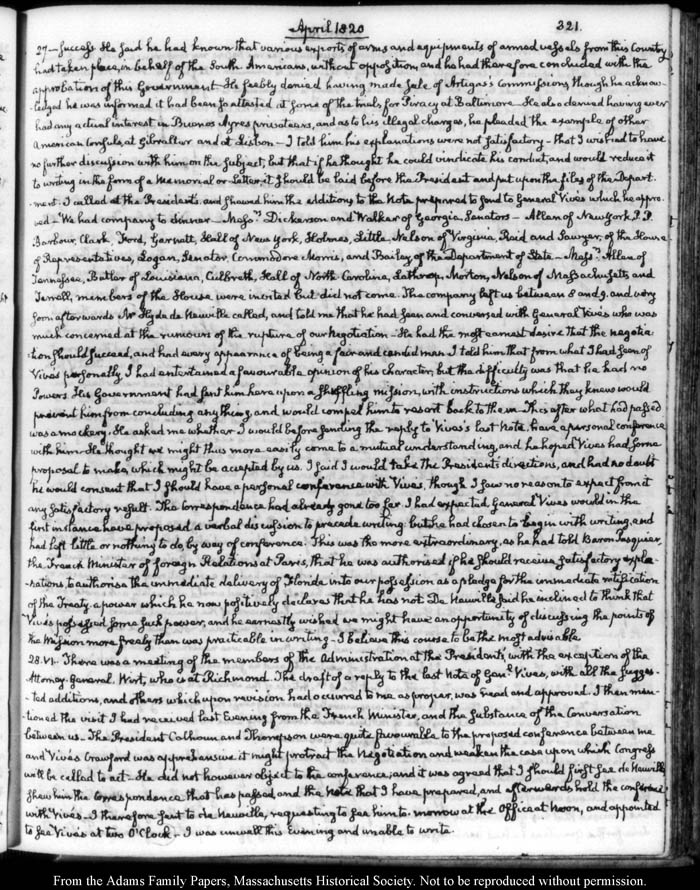 April 1820
321.
27 — success. He said he had known that various exports of arms and equipments of armed vessels from this Country
had taken place, in behalf of the South Americans, without opposition, and he had therefore concluded with the
approbation of this Government. He feebly denied having made sale of Artigas's Commissions, though he acknow-
ledged he was informed it had been so attested at some of the trials for Piracy at Baltimore. He also denied having ever
had any actual interest in Buenos Ayres privateers, and as to his illegal charges, he pleaded the example of other
American Consuls, at Gibraltar and at Lisbon — I told him his explanations were not satisfactory — that I wished to have
no further discussion with him on the subject, but that if he thought he could vindicate his conduct, and would reduce it
to writing in the form of a Memorial or Letter, it should be laid before the President and put upon the files of the Depart-
-ment. I called at the Presidents, and shewed him the additions to the Note prepared to send to General Vives which he appro-
-ved — We had company to dinner — Messrs Dickerson and Walker of Georgia, Senators — Allen of New York, P. P.
Barbour, Clark, Ford, Garnett, Hall of New York, Holmes, Little, Nelson of Virginia, Reid and Sawyer, of the House
of Representatives, Logan, Senator, Commodore Morris, and Bailey of the Department of State — Messrs Allen of
Tennessee, Butler of Louisiana, Culbreth, Hall of North Carolina, Lathrop, Morton, Nelson of Massachusetts and
Terrell, members of the House were invited but did not come. The company left us between 8 and 9. and very
soon afterwards Mr Hyde de Neuville called, and told me that he had seen and conversed with General Vives who was
much concerned at the rumours of the rupture of our Negotiation — He had the most earnest desire that the negotia-
tion should succeed, and had every appearance of being a fair and candid man. I told him that from what I had seen of
Vives personally, I had entertained a favourable opinion of his character, but the difficulty was that he had no
Powers. His Government had sent him here upon a shuffling mission, with instructions which they knew would
prevent him from concluding any thing, and would compel him to resort back to them. This after what had passed
was a mockery. He asked me whether I would before sending the reply to Vives's last Note, have a personal conference
with him. He thought we might thus more easily come to a mutual understanding, and he hoped Vives had some
proposal to make, which might be accepted by us. I said I would take the Presidents directions, and had no doubt
he would consent that I should have a personal conference with Vives, though I saw no reason to expect from it
any satisfactory result. The correspondence had already gone too far. I had expected General Vives would in the
first instance have proposed a verbal discussion to precede writing. but he had chosen to begin with writing, and
had left little or nothing to do, by way of conference. This was the more extraordinary, as he had told Baron Pasquier,
the French Minister of Foreign Relations at Paris, that he was authorised if he should receive satisfactory expla-
-nations to authorise the immediate delivery of Florida into our possession as a pledge for the immediate ratification
of the Treaty. a power which he now positively declares that he has not. De Neuville said he inclined to think that
Vives possessed some such power, and he earnestly wished we might have an opportunity of discussing the points of
the Mission more freely than was practicable in writing — I believe this course to be the most advisable.
28. VI. There was a meeting of the members of the Administration at the Presidents, with the exception of the
Attorney-General Wirt, who is at Richmond. The draft of a reply to the last Note of Genl Vives, with all the sugges-
-ted additions, and others which upon revision had occurred to me as proper, was read and approved. I then men-
-tioned the visit I had received last Evening from the French Minister, and the substance of the Conversation
between us. The President Calhoun and Thompson were quite favourable to the proposed conference between me
and Vives. Crawford was apprehensive it might protract the Negotiation and weaken the case upon which Congress
will be called to act. He did not however object to the conference, and it was agreed that I should first see de Neuville
shew him the Correspondence that has passed, and the Note that I have prepared, and afterwards hold the conference
with Vives. I therefore sent to de Neuville, requesting to see him to-morrow at the Office at Noon, and appointed
to see Vives at two O'Clock — I was unwell this Evening and unable to write.
From the Adams Family Papers, Massachusetts Historical Society. Not to be reproduced without permission.